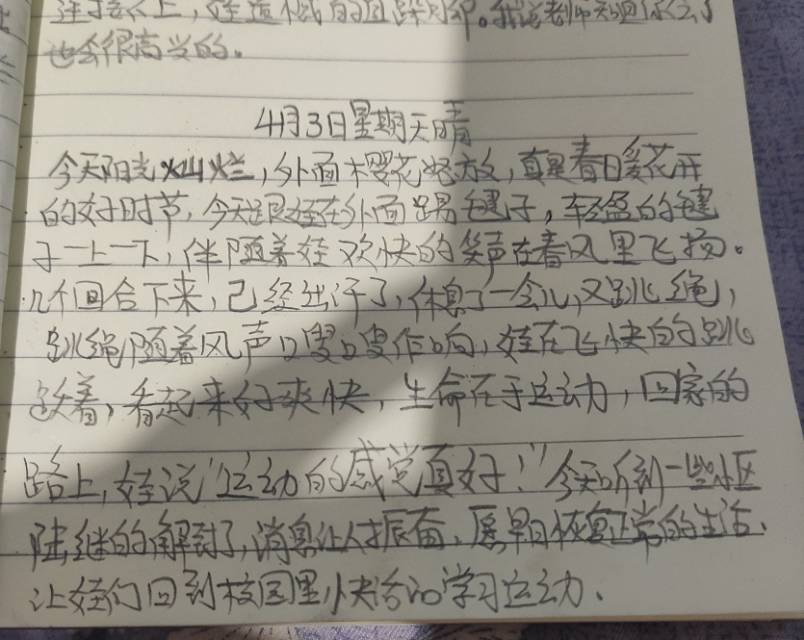 也会很高兴的。
4月3日星期天晴
今天阳光灿烂,外面樱花怒放,真是春日暖花开
的好时节,今天跟娃在外面踢毽子,轻盈的毽
子一上一下,伴随着娃欢快的笑声在春风里飞扬。
几个回合下来,已经出汗了,休息了一会儿,又跳绳,
跳绳随着风声嗖嗖作响,娃在飞快的跳
跃着,看起来好爽快,生命在于运动,回家的
路上,娃说"运动的感觉真好!"今天听到一些小区
陆继的解封了,消息让人振奋,愿早日恢复正常的生活、
让娃们回到校园里快活的学习运动.